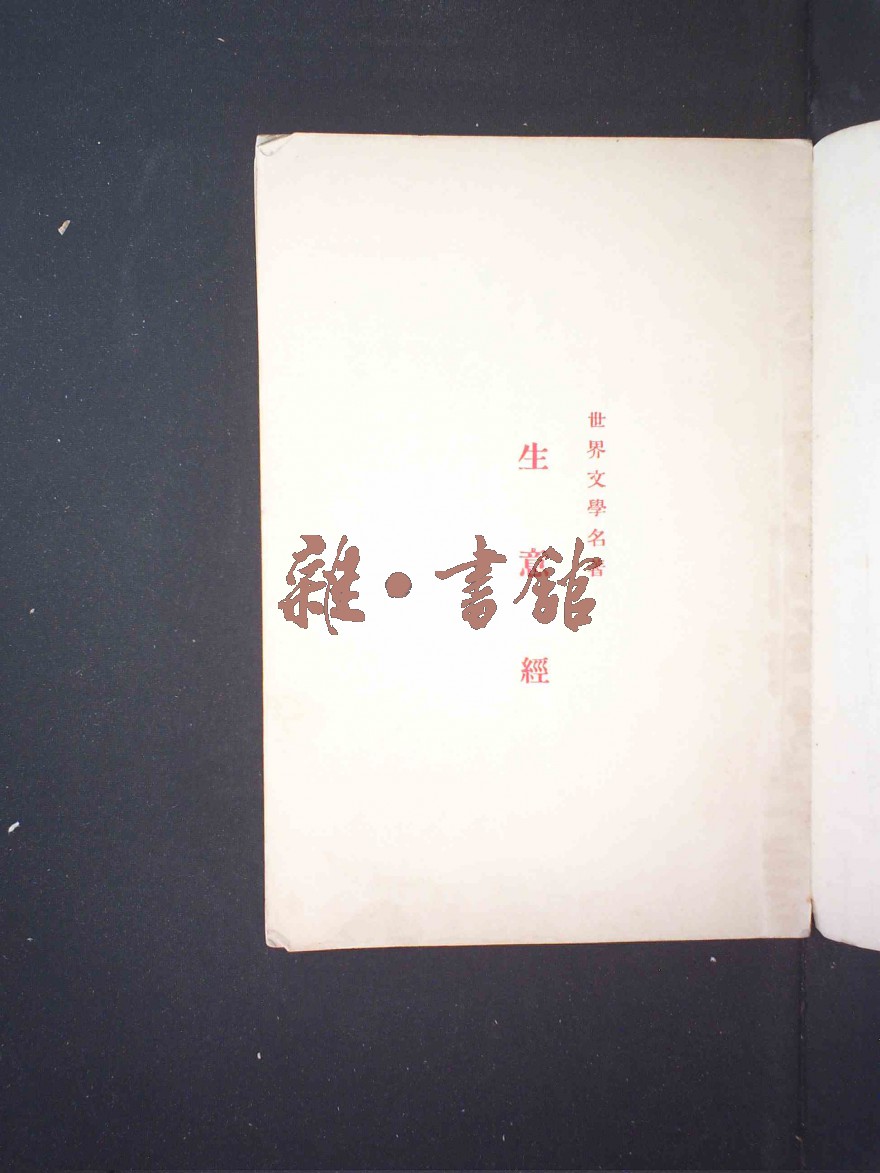 世界文學名著
生意經
雜·書館